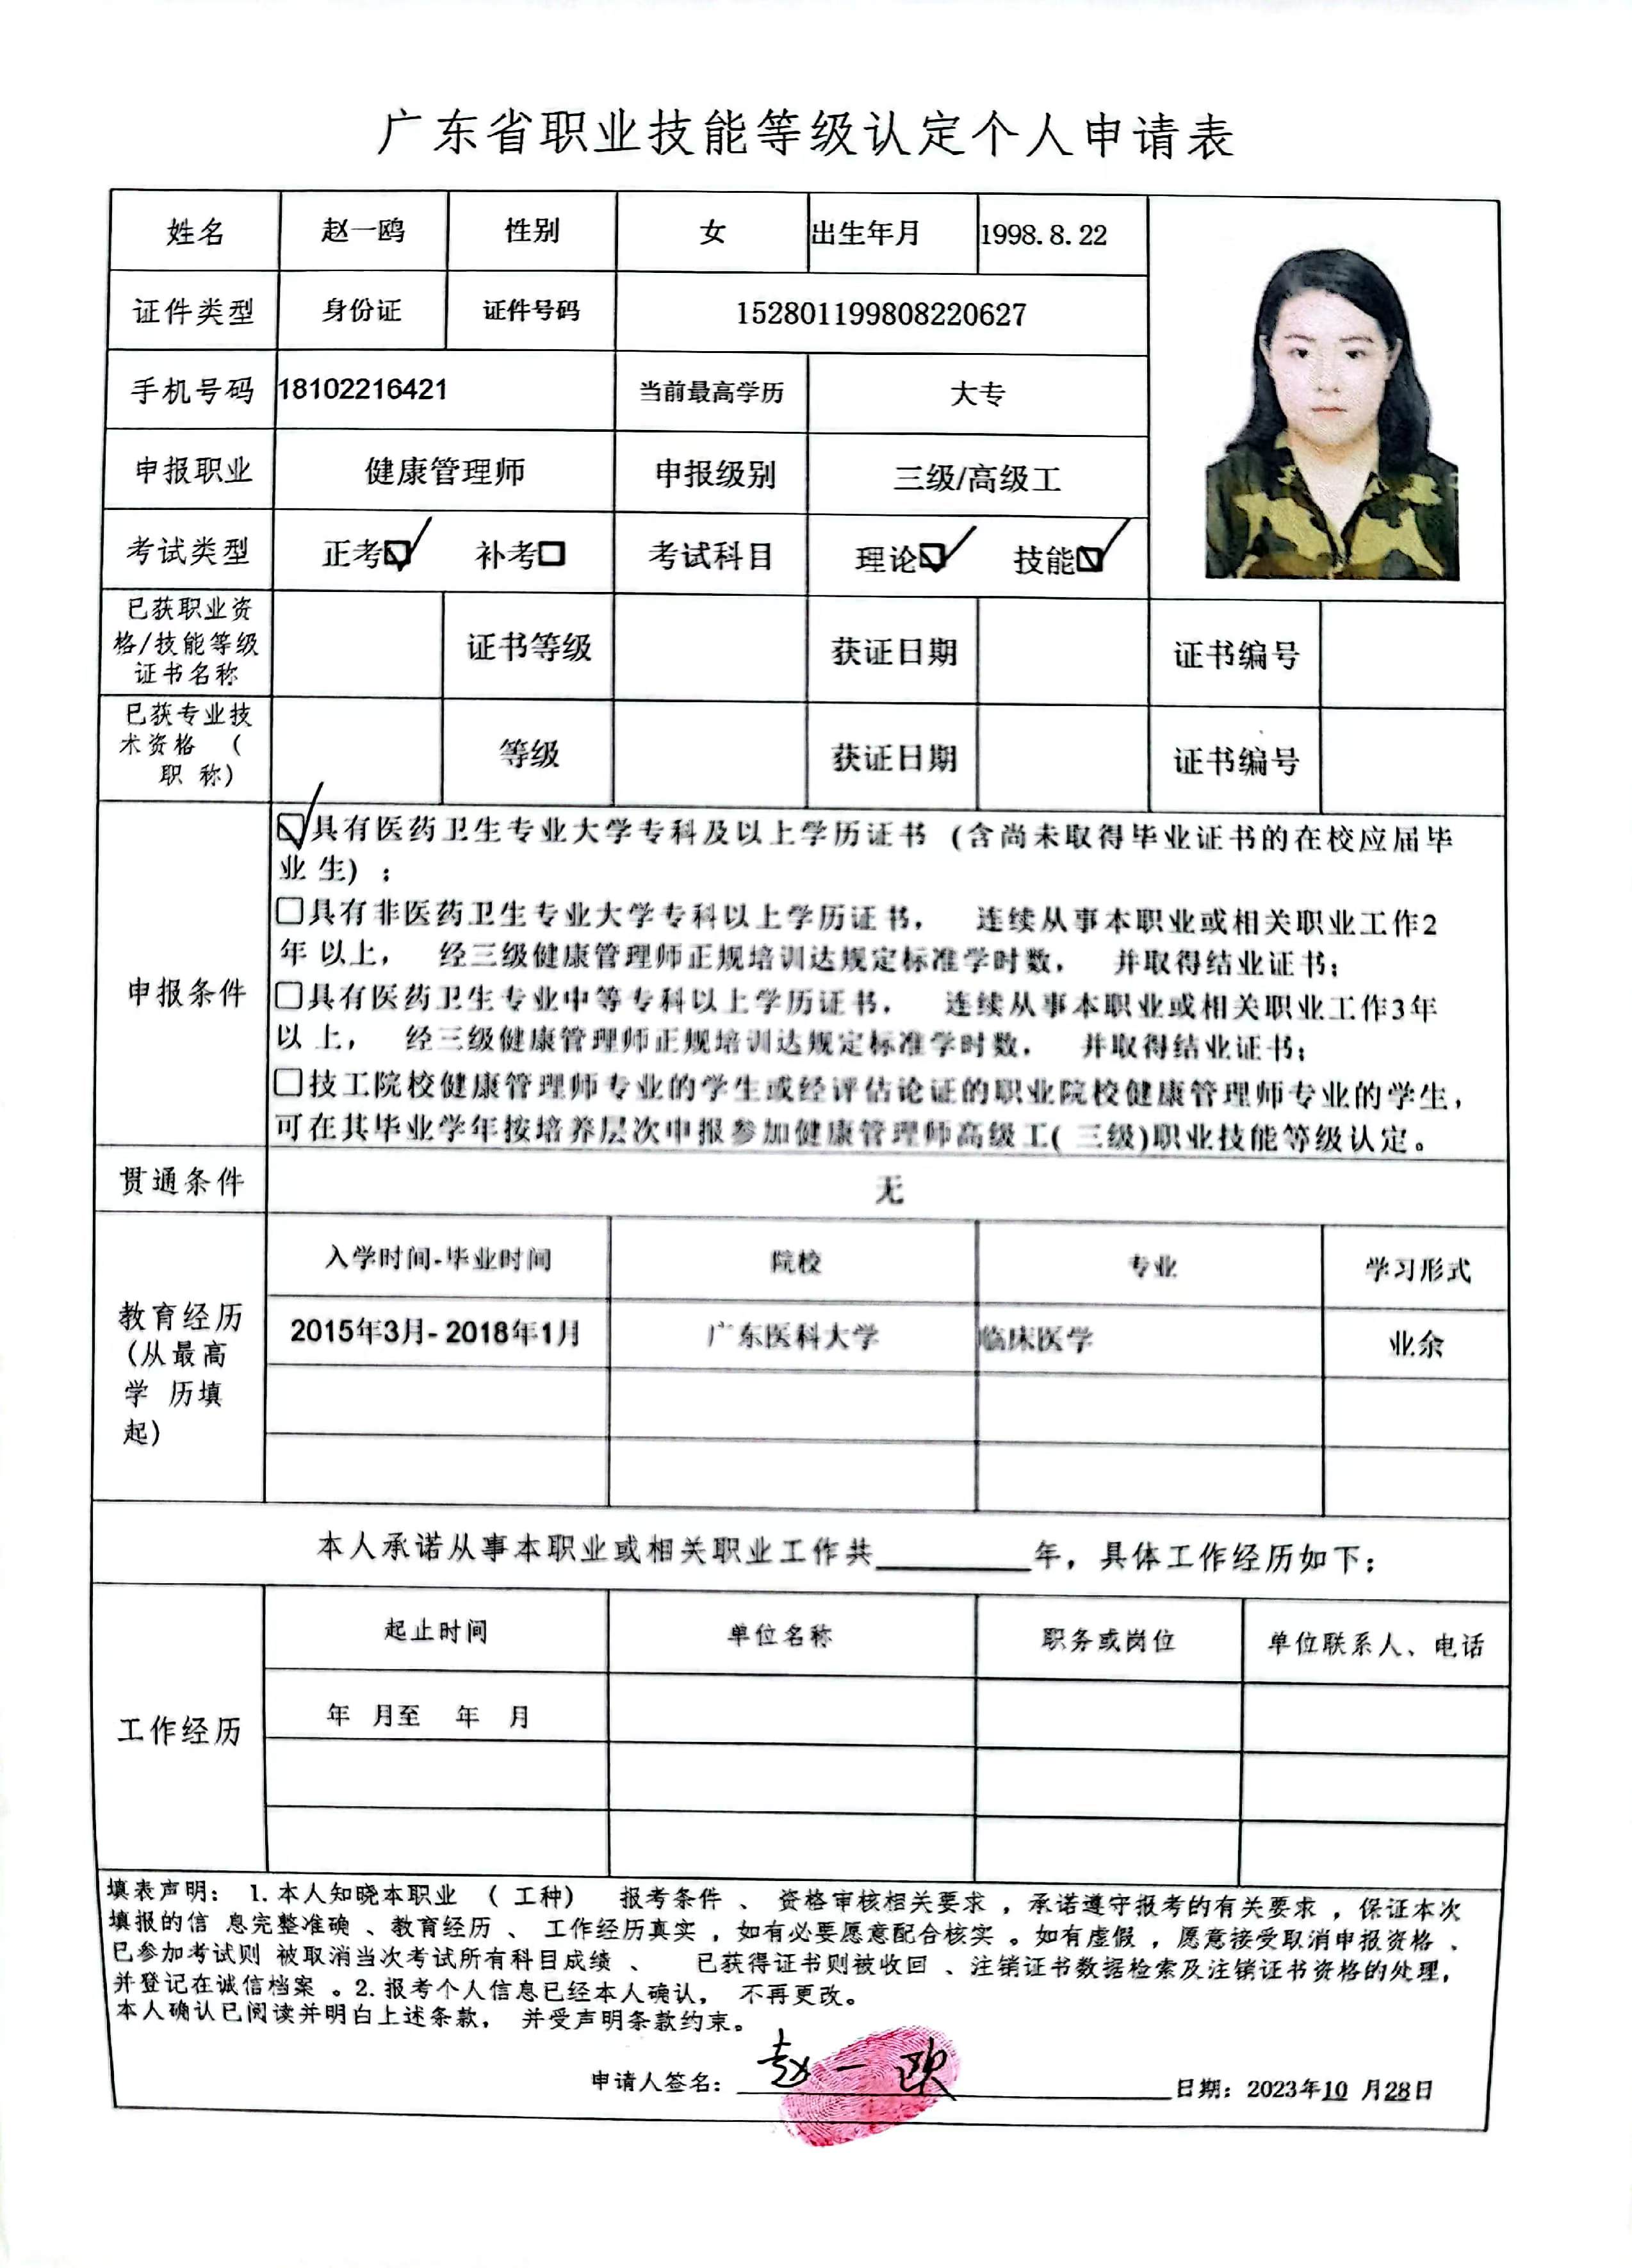 广东省职业技能等级认定个人申请表
姓名 赵一鸥 性别 女 出生年月 1998.8.22
证件类型 身份证 证件号码 152801199808220627
手机号码 18102216421 当前最高学历 大专
申报职业 健康管理师 申报级别 三级/高级工
考试类型 正考☑ 补考□ 考试科目 理论☑ 技能☑
已获职业资
格/技能等级
证书名称
证书等级 获证日期 证书编号
已获专业技
术资格 (
职 称)
等级 获证日期 证书编号
申报条件
☑具有医药卫生专业大学专科及以上学历证书 (含尚未取得毕业证书的在校应届毕
业 生) ;
□具有非医药卫生专业大学专科以上学历证书, 连续从事本职业或相关职业工作2
年 以上, 经三级健康管理师正规培训达规定标准学时数, 并取得结业证书;
□具有医药卫生专业中等专科以上学历证书, 连续从事本职业或相关职业工作3年
以 上, 经三级健康管理师正规培训达规定标准学时数, 并取得结业证书;
□技工院校健康管理师专业的学生或经评估论证的职业院校健康管理师专业的学生,
可在其毕业学年按培养层次申报参加健康管理师高级工( 三级)职业技能等级认定。
贯通条件 无
教育经历
(从最高
学 历填
起)
入学时间-毕业时间 院校 专业 学习形式
2015年3月- 2018年1月 广东医科大学 临床医学 业余
本人承诺从事本职业或相关职业工作共______年, 具体工作经历如下:
工作经历
起止时间 单位名称 职务或岗位 单位联系人、电话
年 月至 年 月
填表声明: 1.本人知晓本职业 ( 工种) 报考条件 、 资格审核相关要求 , 承诺遵守报考的有关要求 , 保证本次
填报的信 息完整准确 、教育经历 、 工作经历真实 , 如有必要愿意配合核实 。如有虚假 , 愿意接受取消申报资格 、
已参加考试则 被取消当次考试所有科目成绩 、 已获得证书则被收回 、注销证书数据检索及注销证书资格的处理,
并登记在诚信档案 。2.报考个人信息已经本人确认, 不再更改。
本人确认已阅读并明白上述条款, 并受声明条款约束。
申请人签名: 赵一欧 日期: 2023年10 月28日